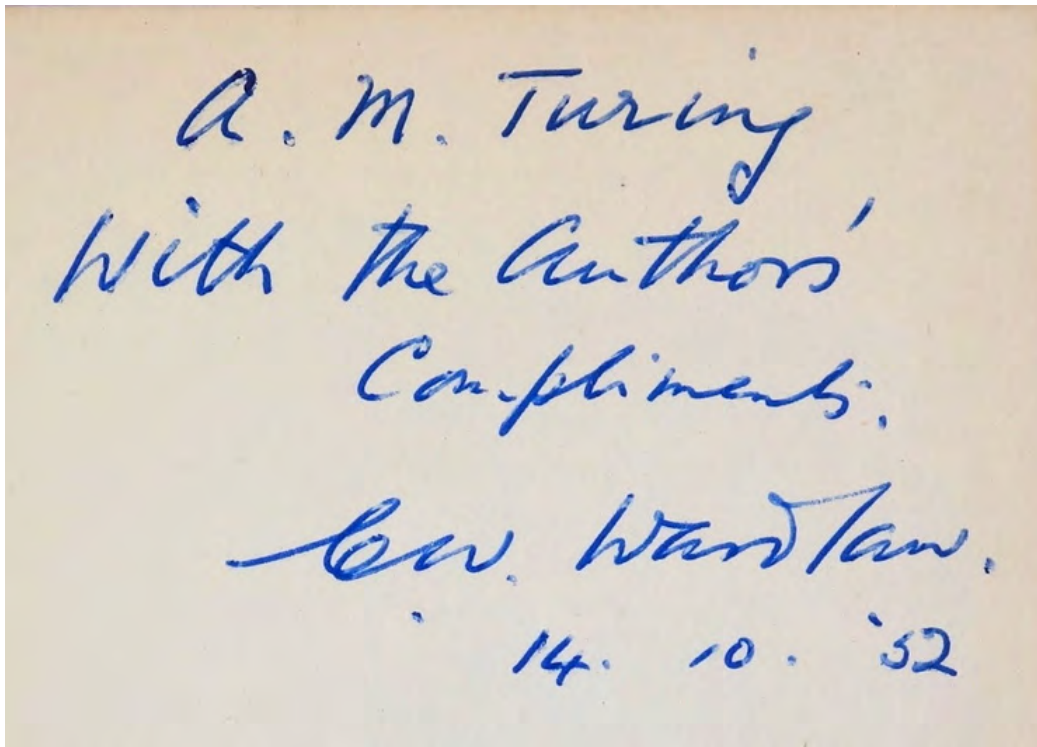 A. M. Turing
With the Author's
Compliments.
C.W. Wardlaw.
14. 10. '52